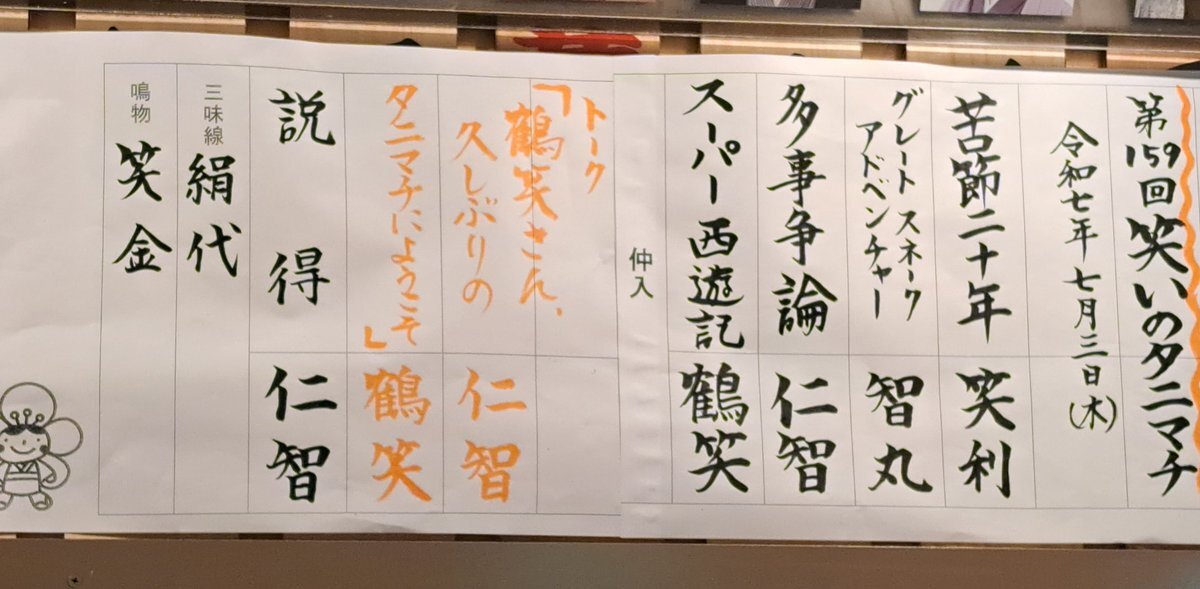 第159回笑いのタニマチ
令和七年 七月三日(木)
苦節二十年 笑利
グレートスネーク
アドベンチャー 智丸
多事争論 仁智
スーパー西遊記 鶴笑
仲入
トーク
「鶴笑さん、
久しぶりの 仁智
タニマチにようこそ」 鶴笑
説得 仁智
三味線 絹代
鳴物 笑金